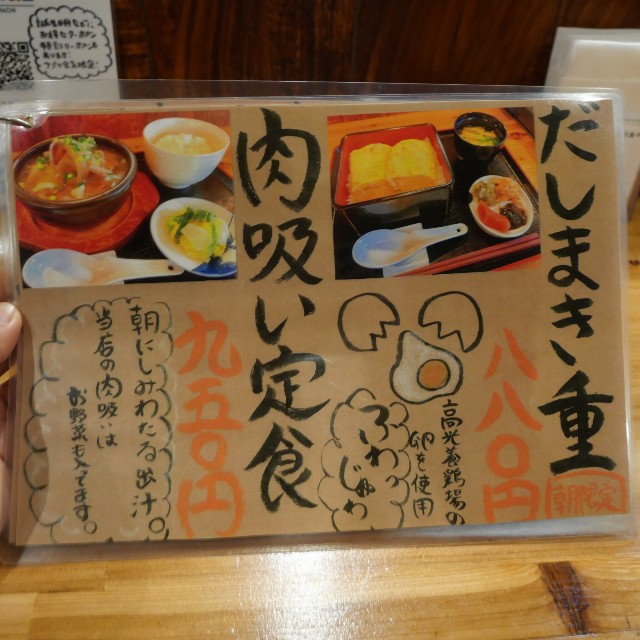 だしまき重
八八〇円
朝限定
高光養鶏場の
卵を使用
ふわっ
じゅわ
肉吸い定食
九五〇円
朝にしみわたる出汁。
当店の肉吸いは
お野菜も入ってます。